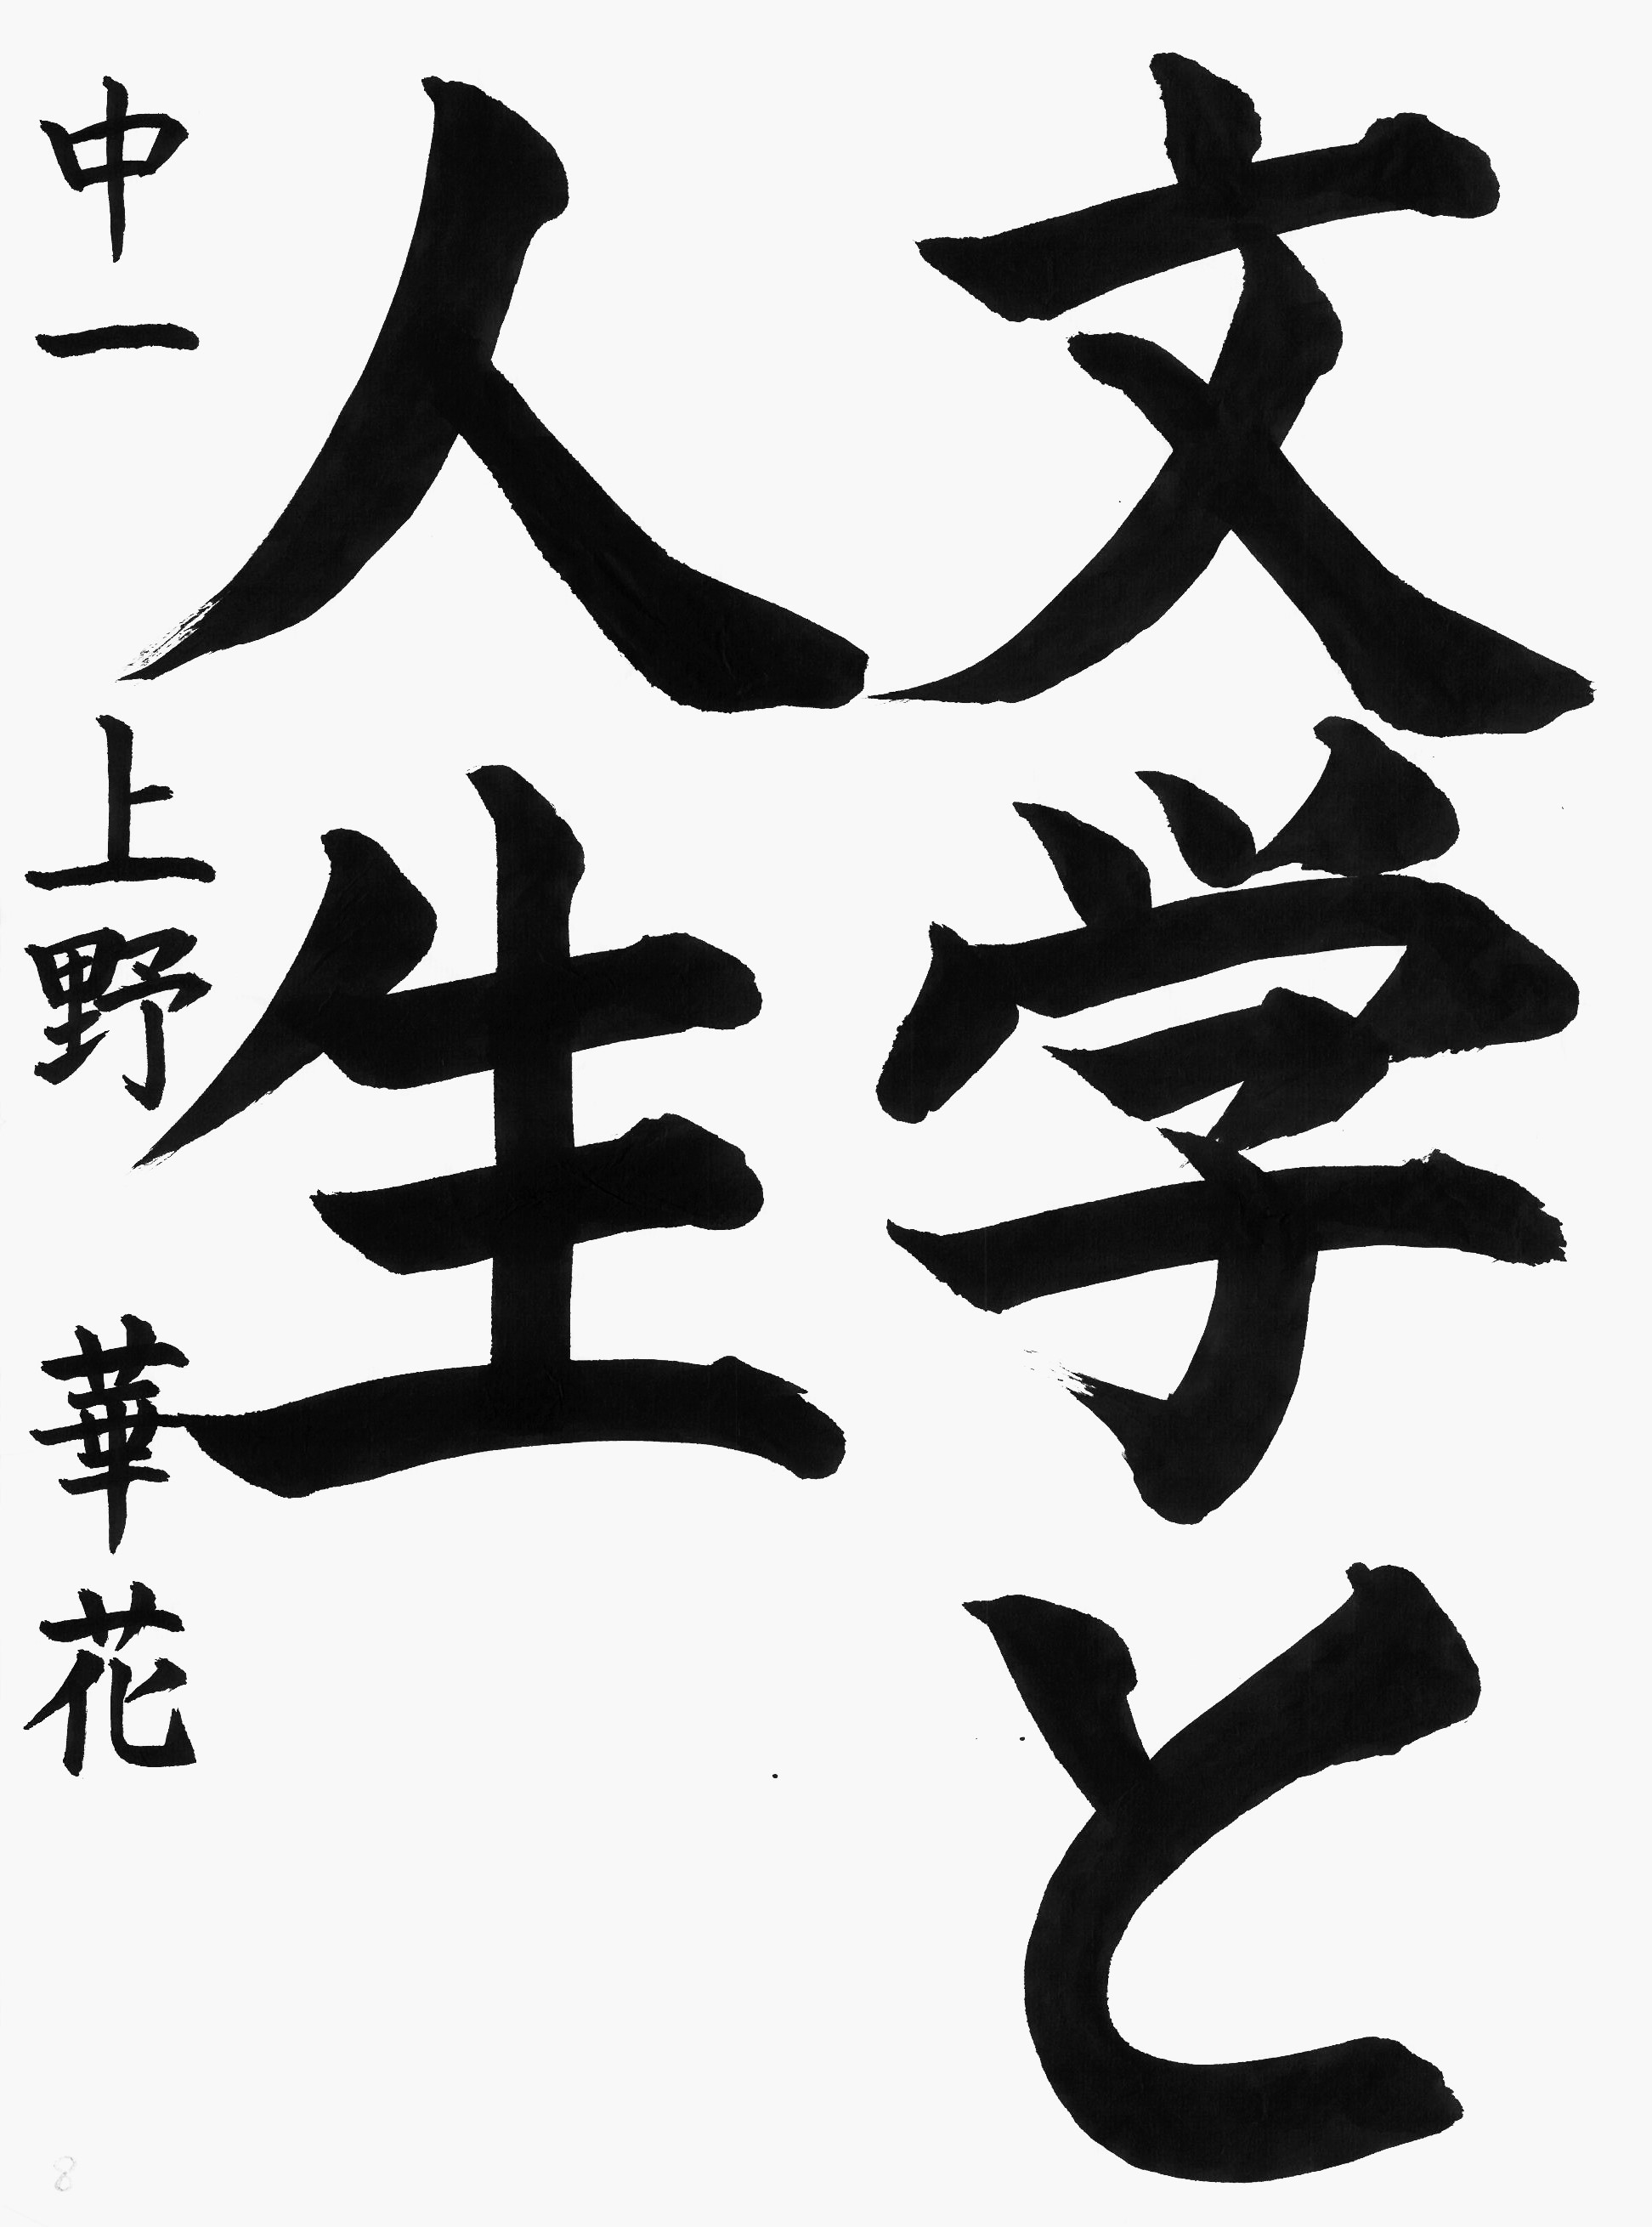 文学と
人生
中一 上野 華花
8